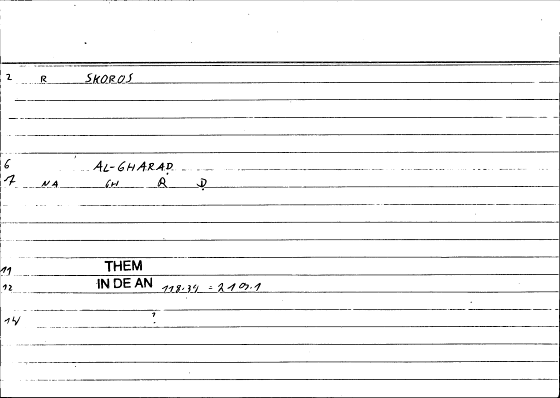 2 R SKOROS
6 AL-GHARAḌ
7 NA GH R Ḍ
11 THEM
12 IN DE AN 118.34 = 219.1
14 ?